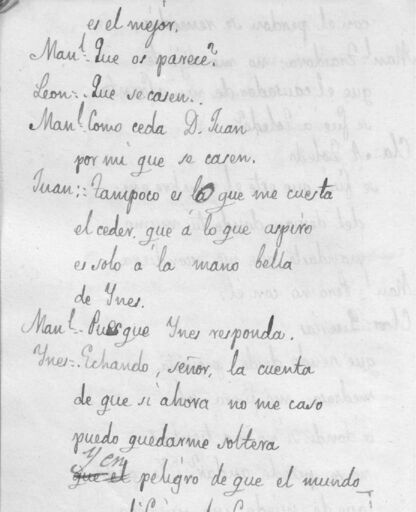 es el mejor.
Man.l Que os parece?
Leon:. Que se casen..
Man.l Como ceda D. Juan
por mi que se casen.
Juan:: Tampoco es lo que me cuesta
el ceder, que á lo que aspiro
es solo á la mano bella
de Ynes.
Man.l Pues que Ynes responda.
Ynes:. Echando, señor, la cuenta
de que si ahora no me caso
puedo quedarme soltera
y en
que el peligro de que el mundo